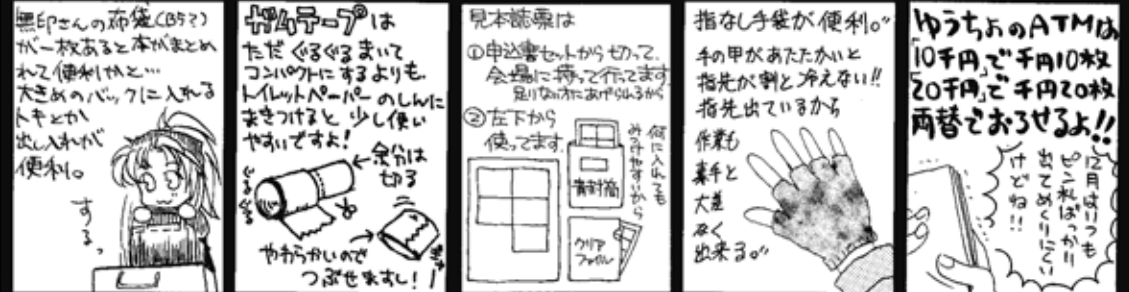 無印さんの布袋(B5?)
が一枚あると本がまとめ
れて便利かと…
大きめのバックに入れる
トキとか
出し入れが
便利。
するっ
ガムテープは
ただぐるぐるまいて
コンパクトにするよりも、
トイレットペーパーのしんに
まきつけると少し使い
やすいですよ!
余分は
切る
ぐるぐる
やわらかいので
つぶせますし!
見本誌票は
①申込書セットから切って、
会場に持って行ってます
足りない方にあげられるから
②左下から
使ってます。
何に入れても
みつけやすいから
青封筒
クリア
ファイル
指なし手袋が便利。
手の甲があたたかいと
指先が割と冷えない!!
指先出ているから
作業も
素手と
大差
なく
出来る。
ゆうちょのATMは
「10千円」で千円10枚
「20千円」で千円20枚
両替でおろせるよ!!
12月はいつも
ピン札ばっかり
出てめくりにくい
けどね!!